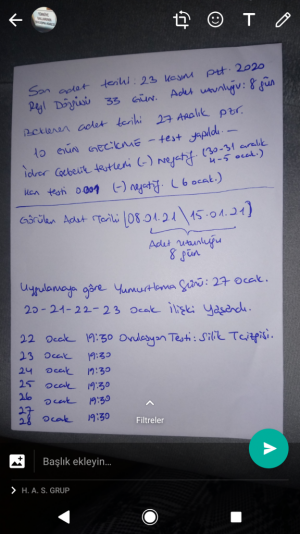 T
Son adet tarihi: 23 Kasım pzt. 2020
Regl Döngüsü 33 Gün. Adet uzunluğu: 8 gün
Beklenen adet tarihi 27 Aralık pzr.
10 GÜN GECİKME - test yapıldı -
İdrar Gebelik testleri (-) negatif. (30-31 aralık
4-5 ocak.)
Kan testi (-) negatif. (6 ocak.)
Görülen Adet Tarihi [08.01.21 \ 15.01.21]
Adet uzunluğu
8 gün
Uygulamaya göre Yumurtlama Günü: 27 Ocak.
20-21-22-23 Ocak İlişki Yaşandı.
22 Ocak 19:30 Ovulasyon Testi: Silik Tek çizgi.
23 Ocak 19:30
24 Ocak 19:30
25 Ocak 19:30
26 Ocak 19:30
27
28 Ocak 19:30
Filtreler
Başlık ekleyin...
H. A. S. GRUP